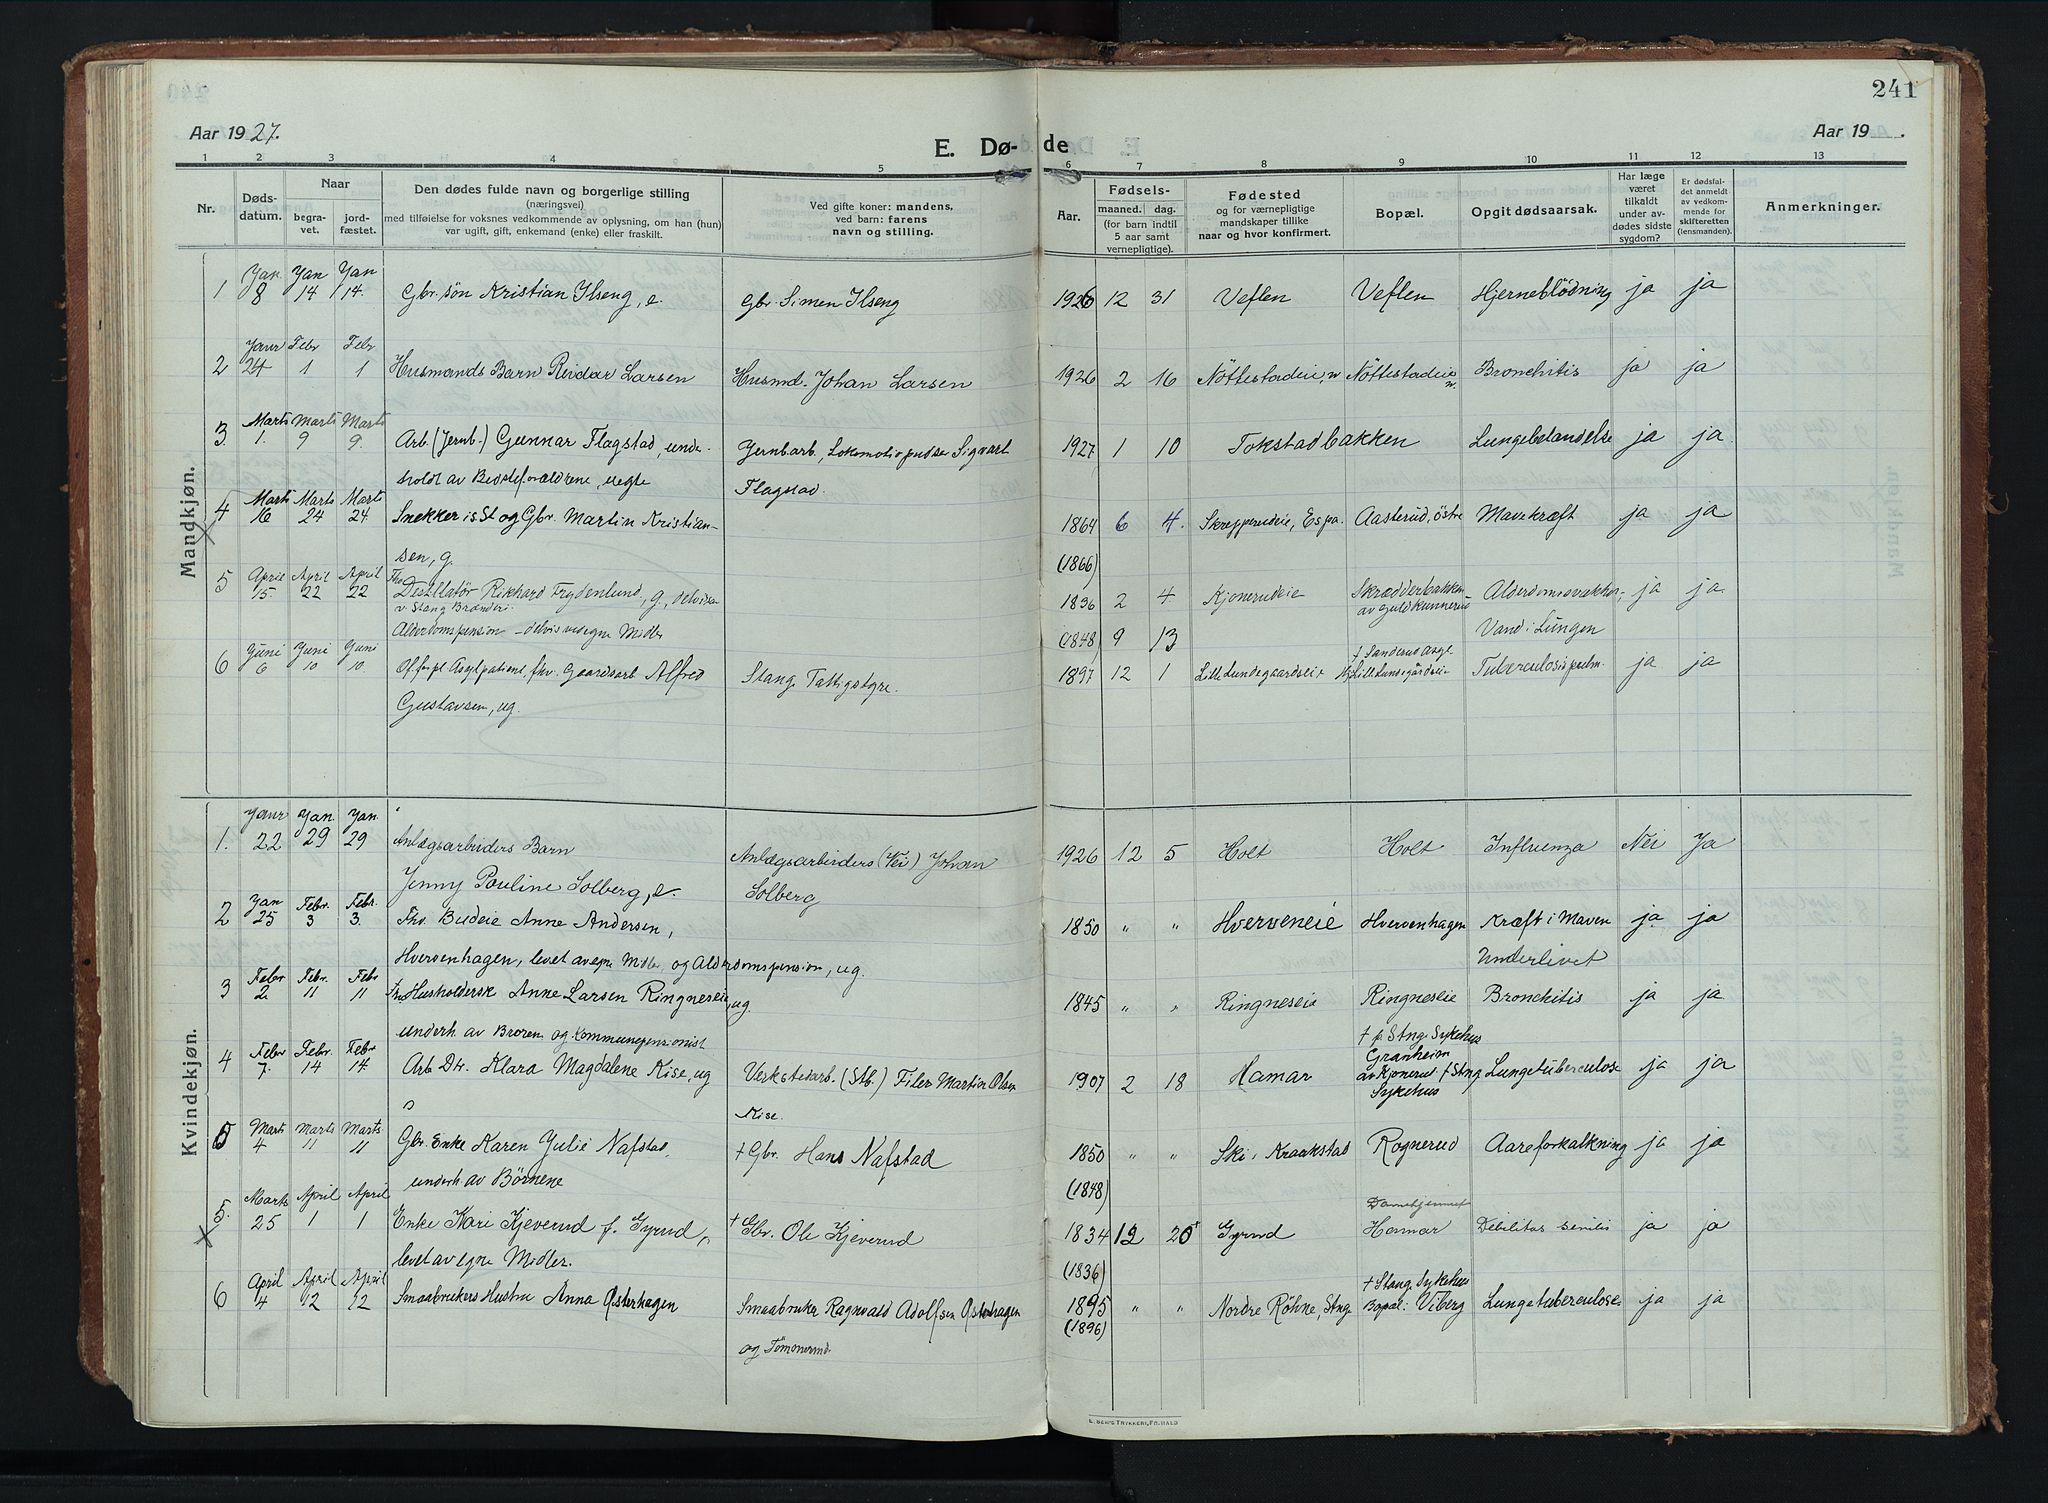 241
Aar 1927.
E. Dø- de
Aar 19 .
1 2 3 4 5 6 7 8 9 10 11 12 13
Nr.
Døds-
datum.
Naar
begra-
vet.
jord-
fæstet.
Den dødes fulde navn og borgerlige stilling
(næringsvei)
med tilføielse for voksnes vedkommende av oplysning, om han (hun)
var ugift, gift, enkemand (enke) eller fraskilt.
Ved gifte koner: mandens,
ved barn: farens
navn og stilling.
Aar.
Fødsels-
maaned. dag.
(for barn indtil
5 aar samt
vernepligtige).
Fødested
og for værnepligtige
mandskaper tillike
naar og hvor konfirmert.
Bopæl.
Opgit dødsaarsak.
Har læge
været
tilkaldt
under av-
dødes sidste
sygdom?
Er dødsfal-
det anmeldt
av vedkom-
mende for
skifteretten
(lensmanden).
Anmerkninger.
Mandkjøn.
Jan. Jan Jan
1 8 14 14. Gbr. søn Kristian Ilseng, e. Gbr. Simen Ilseng 1926 12 31 Veflen Veflen Hjerneblödning ja ja
Janr Febr Febr
2 24 1 1 Husmands Barn Reidar Larsen Husmd. Johan Larsen 1926 2 16 Nöttestadeie, v Nöttestadeie v. Bronchitis ja ja
Marts Marts Marts
3 1. 9 9. Arb. (Jernb.) Gunnar Flagstad, under- Jernbarb., Lokomotivpudser Sigvart 1927 1 10 Tokstadbakken Lungebetændelse ja ja
holdt av Bedsteforældrene, uegte Flagstad.
Marts Marts Marts
4 16 24 24 Snekker i St og Gbr. Martin Kristian- 1864 6 4. Skrepperudeie, Espa. Aasterud, östre Mavekræft ja ja
sen, g. (1866)
April April April
5 15. 22 22 Fhv. Destillatør Rikhard Frydenlund, g., delvis 1836 2 4 Kjonerudeie Skrædderbakken Alderdomssvakhet, ja ja
v. Stang Brænderi av Guldkunnerud
Alderdomspension – delvis ved egne Midler (1848) 9 13 Vand i Lungen
Juni Juni Juni † Sanderud Asyl
6 6 10 10 Off. forpl. Asylpatient, fhv. Gaardsarb Alfred Stang Fattigstyre. 1897 12 1 Lille Lundegaardseie Lille Lundegårdseie Tuberculosis pulm. ja ja
Gustavsen, ug.
Kvindekjøn.
Janr Jan. Jan.
1. 22 29 29 Anlægsarbeiders Barn Anlægsarbeiders (Vei) Johan 1926 12 5 Holt Holt Influenza Nei Ja
Jenny Pauline Solberg, e. Solberg
Jan Febr. Febr.
2 25 3 3. Fhv. Budeie Anne Andersen, 1850 " " Hverveneie Hvervenhagen Kræft i Maven ja ja
Hvervenhagen, levet av egne Midler og Alderdomspension, ug. Underlivet
Febr Febr. Febr
3 2. 11 11 Fhv Husholdersk Anne Larsen Ringneseie, ug. 1845 " " Ringneseie Ringneseie Bronchitis ja ja
underh. av Broren og Kommunepensionist † p. Stng Sykehus
Febr Febr. Febr Granheim
4 7. 14 14 Arb. Dtr. Klara Magdalene Kise, ug Verkstedarb. (Stb.) Filer Martin Olsen 1907 2 18 Hamar av Kjonerud † Stng Lungetuberculose ja ja
Kise. Sykehus
Marts Marts Marts
5 4 11 11 Gbr. Enke Karen Julie Nafstad, † Gbr. Hans Nafstad 1850 " " Ski, Kraakstad Rognerud Aareforkalkning ja ja
underh av Börnene (1848)
Marts April April
5. 25 1 1 Enke Kari Kjeverud f. Gyrud, † Gbr. Ole Kjeverud 1834 12 20 Gyrud Hamar Debilitas senilis ja ja
levet av egne Midler. (1836)
April April April † Stang Sykehus
6 4 12 12 Smaabrukers Hustru Anna Østerhagen Smaabruker Ragnvald Adolfsen Østerhagen 1895 " " Nordre Röhne, Stng Bopæl: Viberg Lungetuberculose ja ja
(1896)
E. SEM'S TRYKKERI, FR.HALD